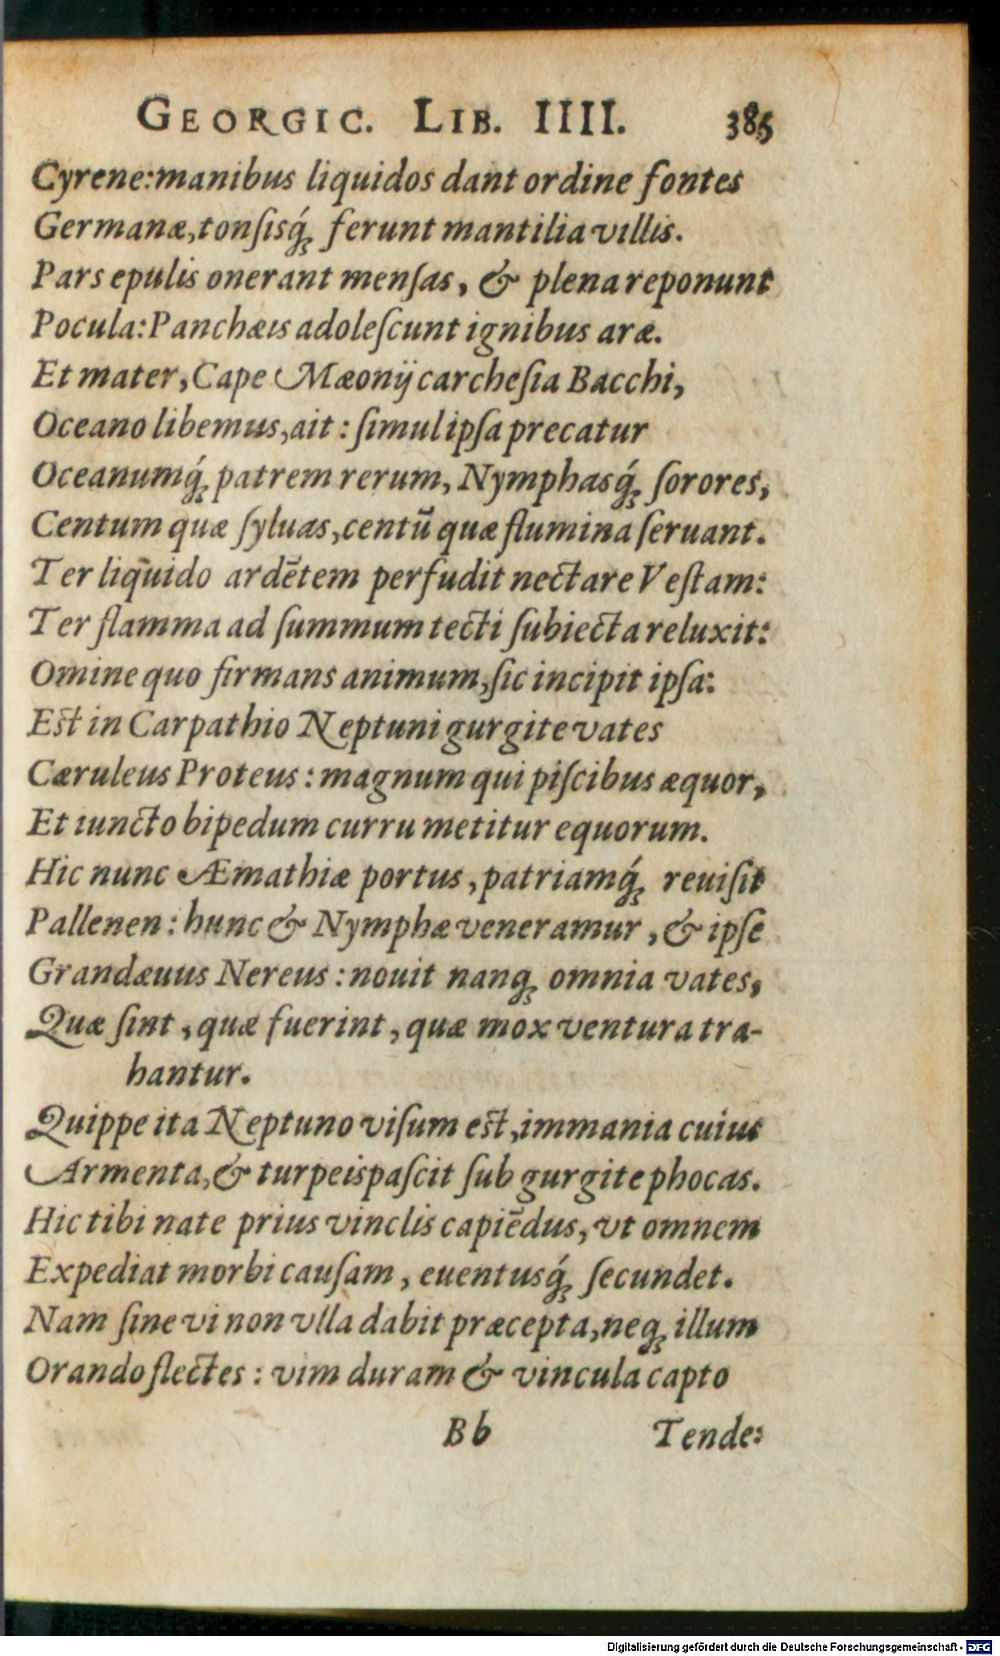 GEORGIC. LIB. IIII. 385
Cyrene: manibus liquidos dant ordine fontes
Germanæ, tonſisq́ꝫ ferunt mantilia villis.
Pars epulis onerant menſas, & plena reponunt
Pocula: Panchæis adoleſcunt ignibus aræ.
Et mater, Cape Mæonij carcheſia Bacchi,
Oceano libemus, ait: ſimul ipſa precatur
Oceanumq́ꝫ patrem rerum, Nymphasq́ꝫ ſorores,
Centum quæ ſyluas, centũ quæ flumina ſeruant.
Ter liquido ardẽtem perfudit nectare Veſtam:
Ter flamma ad ſummum tecti ſubiecta reluxit:
Omine quo firmans animum, ſic incipit ipſa:
Eſt in Carpathio Neptuni gurgite vates
Cæruleus Proteus: magnum qui piſcibus æquor,
Et iuncto bipedum curru metitur equorum.
Hic nunc Æmathiæ portus, patriamq́ꝫ reuiſit
Pallenen: hunc & Nymphæ veneramur, & ipſe
Grandæuus Nereus: nouit nanqꝫ omnia vates,
Quæ ſint, quæ fuerint, quæ mox ventura tra-
hantur.
Quippe ita Neptuno viſum eſt, immania cuius
Armenta, & turpeis paſcit ſub gurgite phocas.
Hic tibi nate prius vinclis capiẽdus, vt omnem
Expediat morbi cauſam, euentusq́ꝫ ſecundet.
Nam ſine vi non vlla dabit præcepta, neqꝫ illum
Orando flectes: vim duram & vincula capto
Bb Tende:
Digitalisierung gefördert durch die Deutsche Forschungsgemeinschaft - DFG